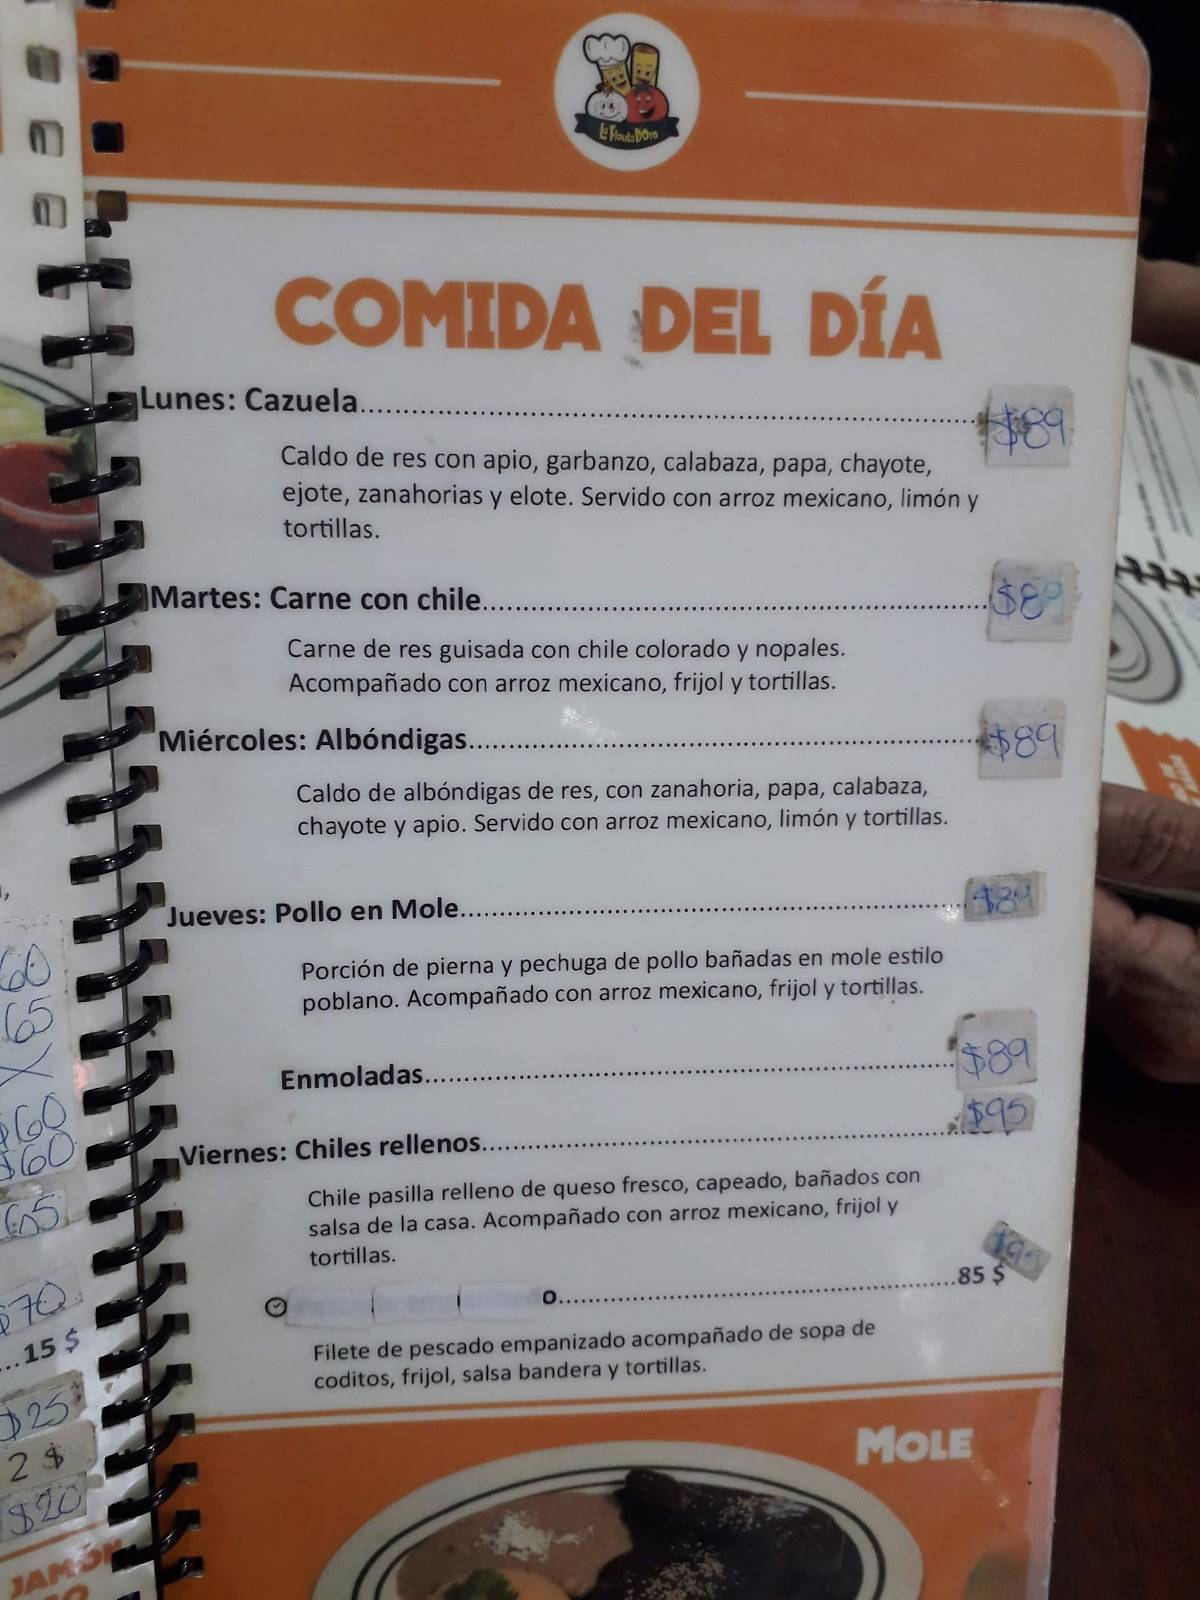 La Flauta DOro
COMIDA DEL DÍA
Lunes: Cazuela.......... $89
Caldo de res con apio, garbanzo, calabaza, papa, chayote,
ejote, zanahorias y elote. Servido con arroz mexicano, limón y
tortillas.
Martes: Carne con chile.......... $89
Carne de res guisada con chile colorado y nopales.
Acompañado con arroz mexicano, frijol y tortillas.
Miércoles: Albóndigas.......... $89
Caldo de albóndigas de res, con zanahoria, papa, calabaza,
chayote y apio. Servido con arroz mexicano, limón y tortillas.
Jueves: Pollo en Mole.......... $89
Porción de pierna y pechuga de pollo bañadas en mole estilo
poblano. Acompañado con arroz mexicano, frijol y tortillas.
Enmoladas.......... $89
Viernes: Chiles rellenos.......... $95
Chile pasilla relleno de queso fresco, capeado, bañados con
salsa de la casa. Acompañado con arroz mexicano, frijol y
tortillas.
o.......... 85 $
Filete de pescado empanizado acompañado de sopa de
coditos, frijol, salsa bandera y tortillas.
MOLE
60
65
X
$60
$60
65
$70
...15 $
$25
2 $
$20
JAMÓN